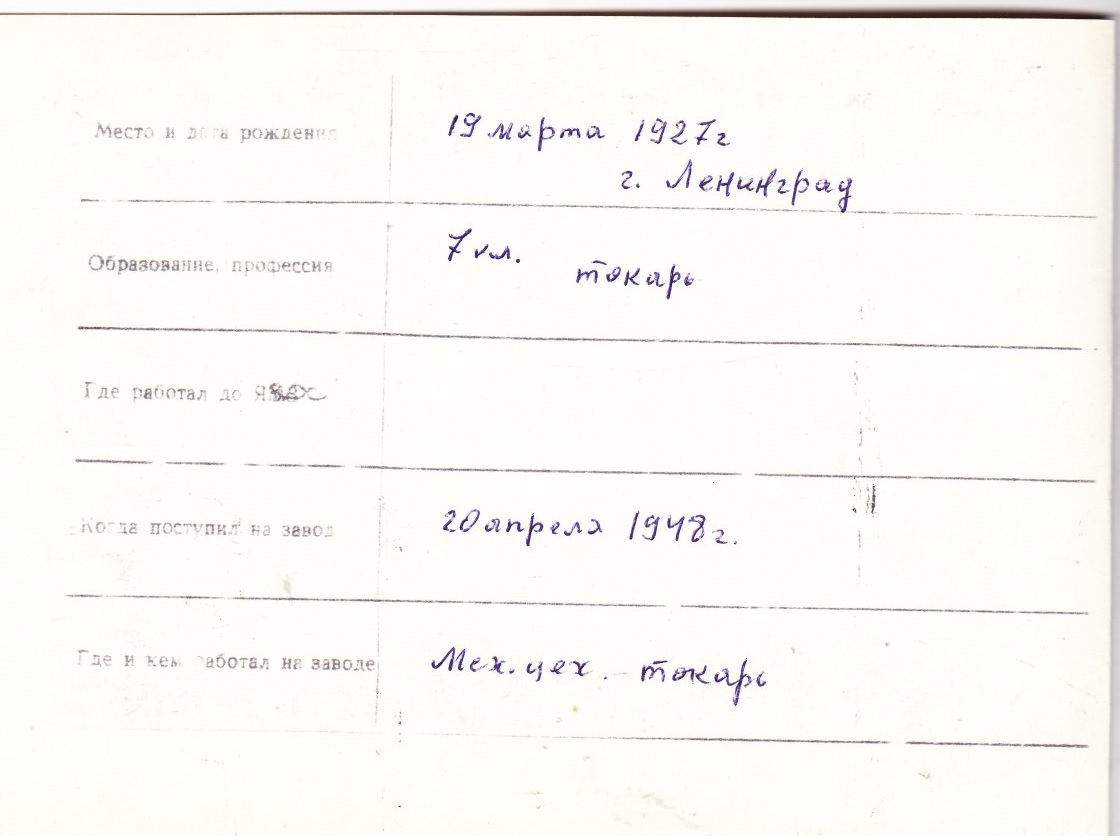 Место и дата рождения
19 марта 1927г
г. Ленинград
Образование, профессия
7 кл.
токарь
Где работал до
Когда поступил на завод
20 апреля 1948 г.
Где и кем работал на заводе
Мех. цех. - токарь